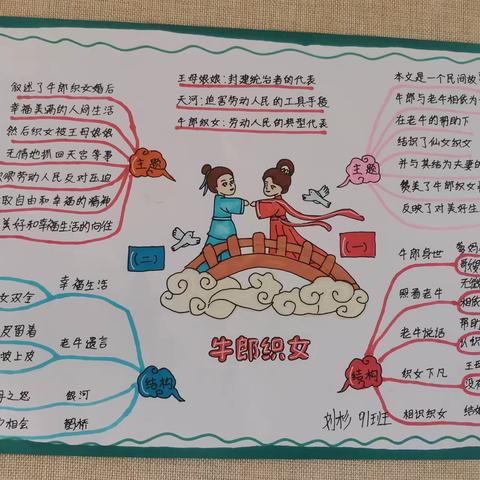 王母娘娘:封建统治者的代表
天河:迫害劳动人民的工具手段
牛郎织女:劳动人民的典型代表
叙述了牛郎织女婚后
幸福美满的人间生活
然后织女被王母娘娘
无情地抓回天宫等事
劳动人民反对压迫
取自由和幸福的精神
美好和幸福生活的向往
主题
本文是一个民间故
牛郎与老牛相依为
在老牛的帮助下
结识了仙女织女
并与其结为夫妻的
赞美了牛郎织女
反映了对美好生
主题
(二)
(一)
幸福生活
女双全
老牛遗言
皮留着
披上皮
银河
母之怒
鹊桥
相会
结构
牛郎身世
照看老牛
相依
老牛说话
帮助
织女下凡
王母
相识织女
结婚
结构
牛郎织女
刘杉 91班